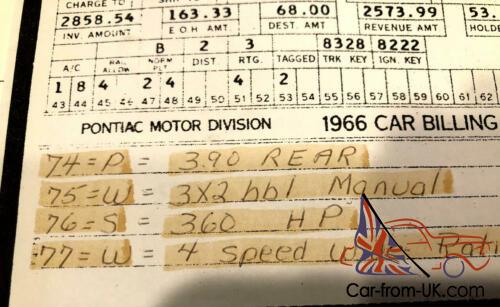 CHARGE TO
2858.54 163.33 68.00 2573.99 53.
INV. AMOUNT E O H AMT. DEST. AMT REVENUE AMT HOLD
B 2 3 8328 8222
A/C RAIL ALLOW NORM PLT DIST. RTG. TAGGED TRK KEY IGN. KEY
1 8 4 2 4 4 2
43 44 45 46 47 48 49 50 51 52 53 54 55 56 57 58 59 60 61 62
PONTIAC MOTOR DIVISION 1966 CAR BILLING
74=P = 3.90 REAR
75=W = 3X2 bbl Manual
76=S = 360 HP
77=W = 4 Speed Rati
Car-from-UK.com